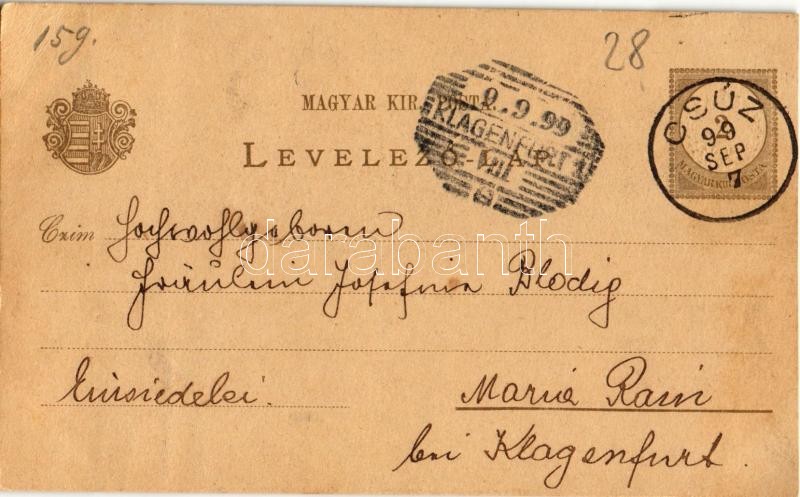 159.
28
MAGYAR KIR. POSTA.
LEVELEZŐ-LAP.
9.9.99
KLAGENFURT 1
VIII
CSÚZ
2
99
SEP
7
MAGYAR KIR. POSTA
Czim Hochwohlgeboren
Fräulein Josefine Blodig
darabanth
Einsiedelei.
Maria Rain
bei Klagenfurt.